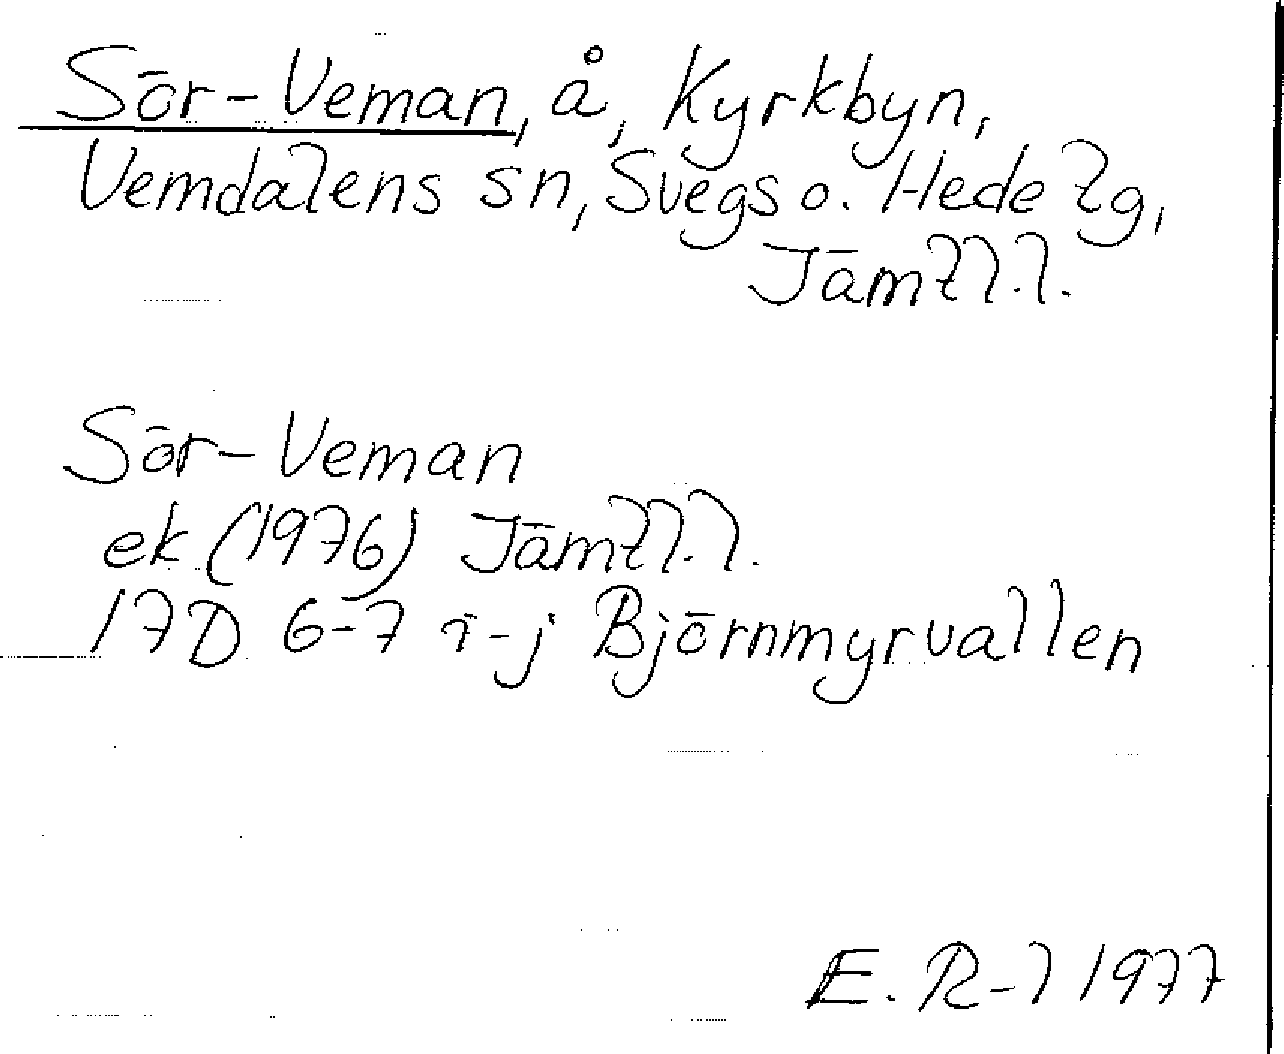 Sör-Veman, å, Kyrkbyn,
Vemdalens sn, Svegs o. Hede tg,
Jämtl.l.
Sör-Veman
ek (1976) Jämtl.l.
17D 6-7 i-j Björnmyrvallen
E. R-l 1977